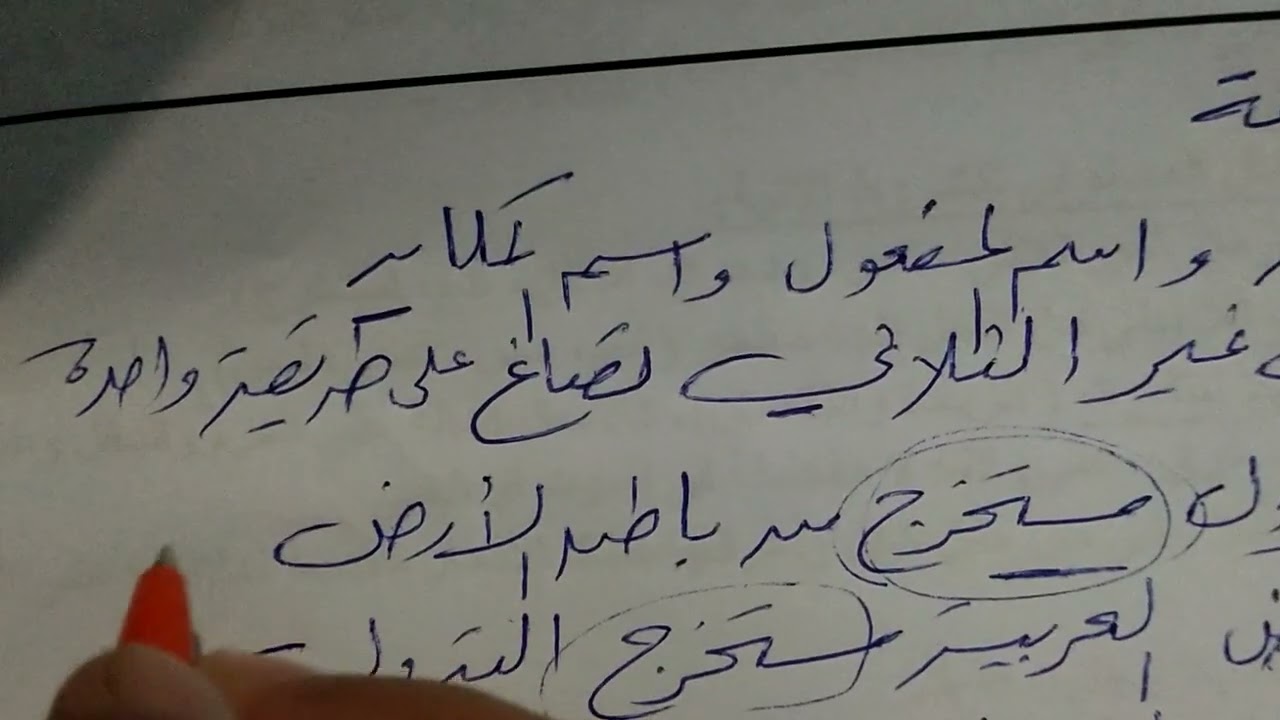 واسم المفعول واسم المكان
غير الثلاثي تصاغ على طريقة واحدة
مستخرج من باطن الأرض
العربية مستخرج البترول